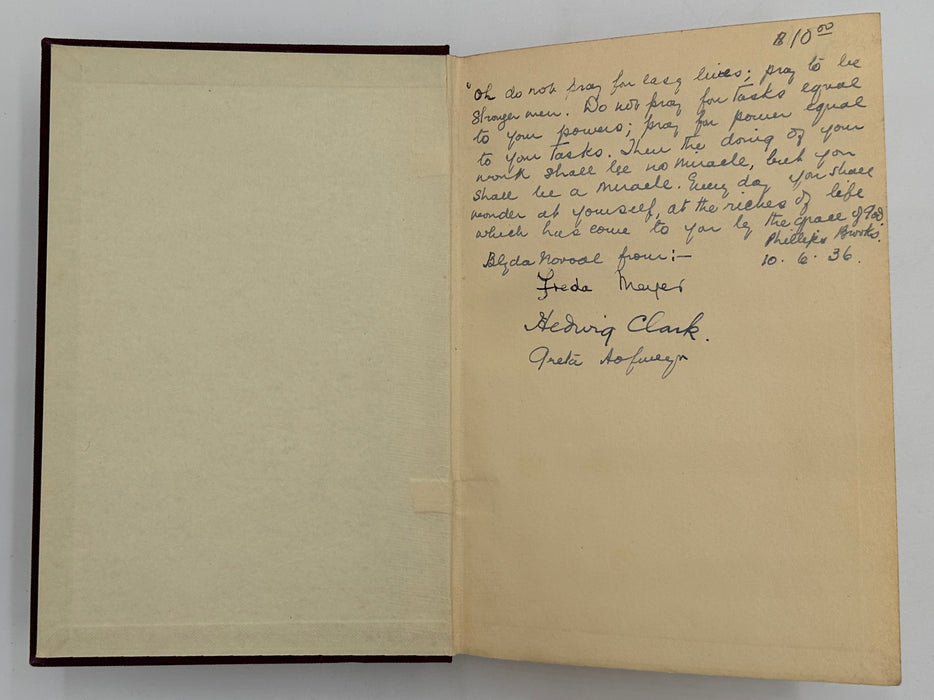 $10.00
"Oh do not pray for easy lives; pray to be
stronger men. Do not pray for tasks equal
to your powers; pray for power equal
to your tasks. Then the doing of your
work shall be no miracle, but you
shall be a miracle. Every day you shall
wonder at yourself, at the riches of life
which has come to you by the grace of God.
Phillips Brooks.
10. 6. 36.
from:—
Freda Meyer
Hedwig Clark.
Greta